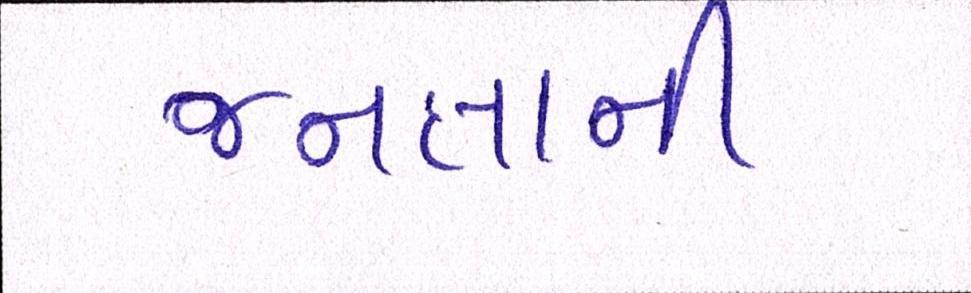 જનતાની